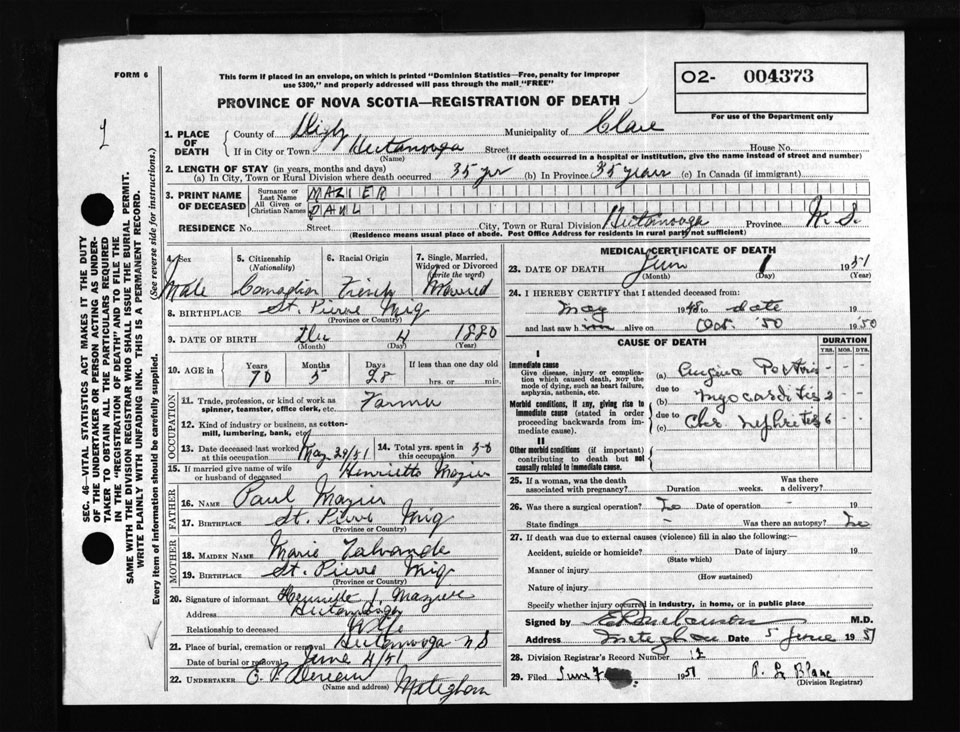 FORM 6
This form if placed in an envelope, on which is printed "Dominion Statistics—Free, penalty for improper
use $300," and properly addressed will pass through the mail "FREE"
O2- 004373
For use of the Department only
PROVINCE OF NOVA SCOTIA—REGISTRATION OF DEATH
SEC. 46—VITAL STATISTICS ACT MAKES IT THE DUTY
OF THE UNDERTAKER OR PERSON ACTING AS UNDER-
TAKER TO OBTAIN ALL THE PARTICULARS REQUIRED
IN THE "REGISTRATION OF DEATH" AND TO FILE THE
SAME WITH THE DIVISION REGISTRAR WHO SHALL ISSUE THE BURIAL PERMIT.
WRITE PLAINLY WITH UNFADING INK. THIS IS A PERMANENT RECORD.
Every item of information should be carefully supplied. (See reverse side for instructions.)
1. PLACE OF DEATH
County of Digby Municipality of Clare
If in City or Town Hectanooga Street House No.
(Name) (If death occurred in a hospital or institution, give the name instead of street and number)
2. LENGTH OF STAY (in years, months and days)
(a) In City, Town or Rural Division where death occurred 35 yr (b) In Province 35 years (c) In Canada (if immigrant)
3. PRINT NAME OF DECEASED
Surname or Last Name MAZIER
All Given or Christian Names PAUL
RESIDENCE No. Street City, Town or Rural Division Hectanooga Province N. S.
(Residence means usual place of abode. Post Office Address for residents in rural parts not sufficient)
4. Sex Male
5. Citizenship (Nationality) Canadian
6. Racial Origin French
7. Single, Married, Widowed or Divorced (write the word) Married
8. BIRTHPLACE St. Pierre Miq
(Province or Country)
9. DATE OF BIRTH Dec 4 1880
(Month) (Day) (Year)
10. AGE in Years 70 Months 5 Days 28 If less than one day old
hrs. or min.
OCCUPATION
11. Trade, profession, or kind of work as
spinner, teamster, office clerk, etc. Farmer
12. Kind of industry or business, as cotton-
mill, lumbering, bank, etc.
13. Date deceased last worked at this occupation May 29/51
14. Total yrs. spent in this occupation
15. If married give name of wife or husband of deceased Henriette Mazier
FATHER
16. NAME Paul Mazier
17. BIRTHPLACE St. Pierre Miq
(Province or Country)
MOTHER
18. MAIDEN NAME Marie
19. BIRTHPLACE St. Pierre Miq
(Province or Country)
20. Signature of informant Henriette J. Mazier
Address Hectanooga
Relationship to deceased Wife
21. Place of burial, cremation or removal Hectanooga N S
Date of burial or removal June 4/51
22. UNDERTAKER E. P.
(Name and address) Meteghan
MEDICAL CERTIFICATE OF DEATH
23. DATE OF DEATH June 1 1951
(Month) (Day) (Year)
24. I HEREBY CERTIFY that I attended deceased from:
May 1948 to date
and last saw h im alive on Oct. '50 1950
CAUSE OF DEATH
DURATION
YRS. MOS. DYS.
I
Immediate cause
Give disease, injury or complica-
tion which caused death, not the
mode of dying, such as heart failure,
asphyxia, asthenia, etc.
(a) Angina Pectoris
due to
Morbid conditions, if any, giving rise to
immediate cause (stated in order
proceeding backwards from im-
mediate cause).
(b) Myocarditis 2
due to
(c) Chr. Nephritis 6
II
Other morbid conditions (if important)
contributing to death but not
causally related to immediate cause.
25. If a woman, was the death
associated with pregnancy? Duration weeks. Was there
a delivery?
26. Was there a surgical operation? No Date of operation 19
State findings Was there an autopsy? No
27. If death was due to external causes (violence) fill in also the following:
Accident, suicide or homicide? Date of injury 19
(State which)
Manner of injury
(How sustained)
Nature of injury
Specify whether injury occurred in industry, in home, or in public place
Signed by M.D.
Address Meteghan Date 5 June 1951
28. Division Registrar's Record Number 12
29. Filed June 7 1951 P. L. Blanc
(Division Registrar)